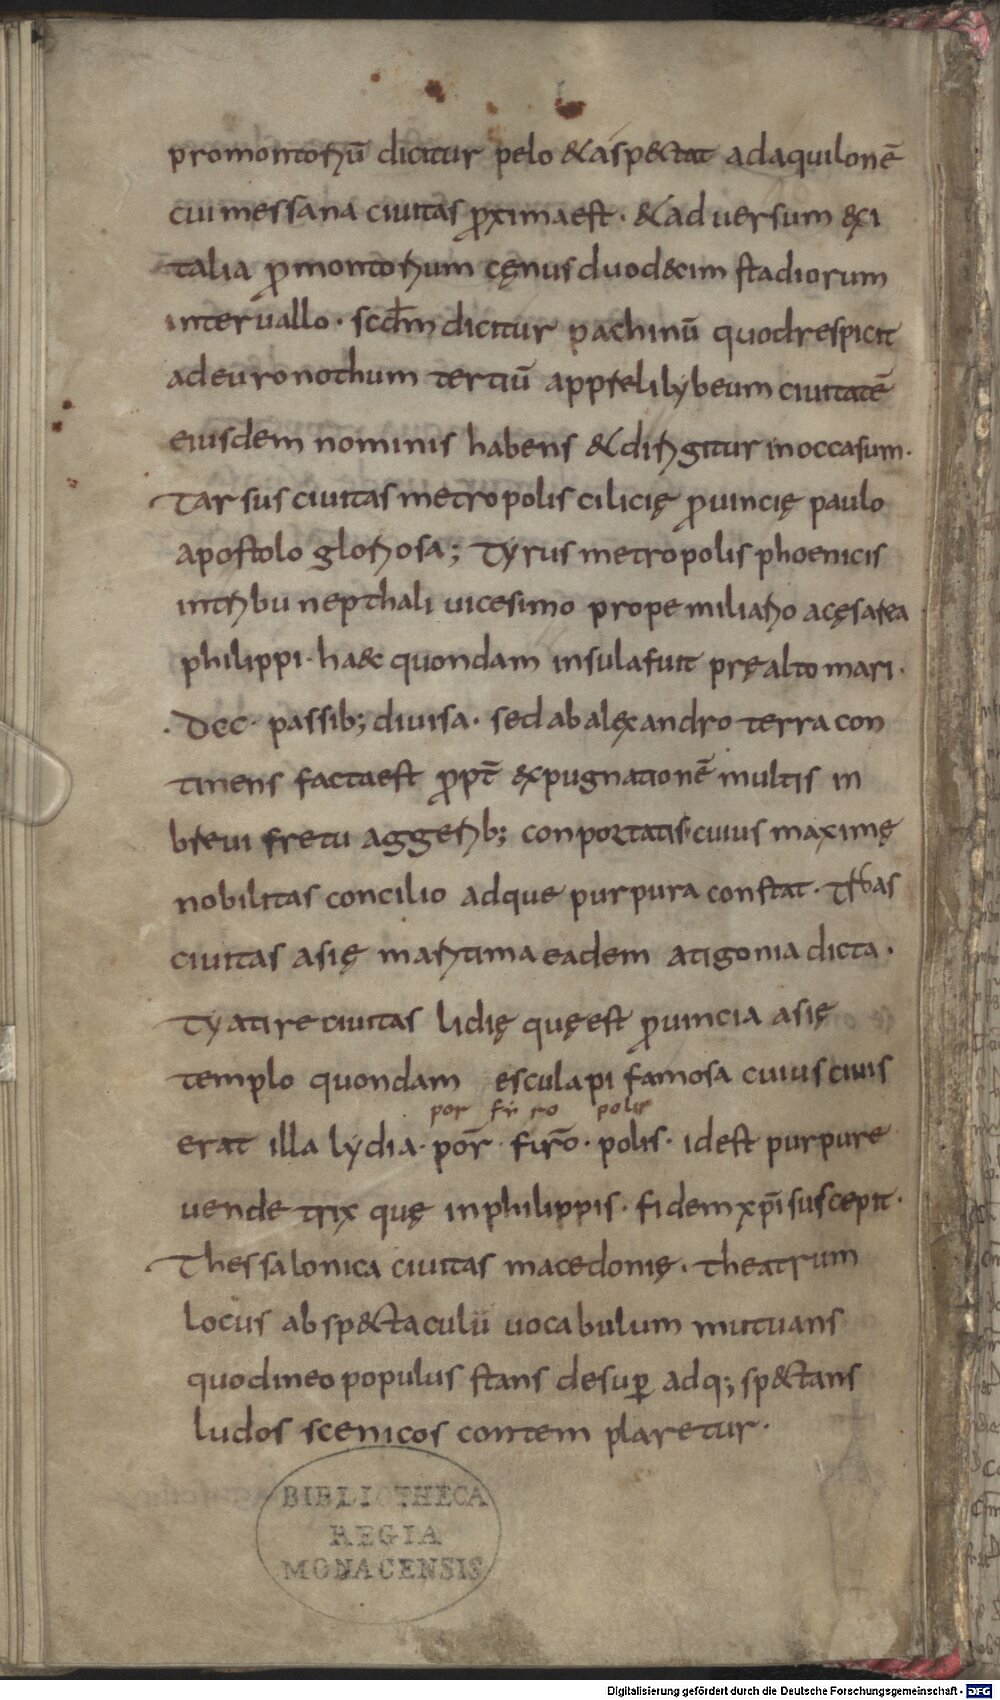 promontoriū dicitur pelo &asp&tat adaquilonē
cuimessana ciuitas ꝓximaest. &aduersum &xi
talia ꝓmontorium cęnus duod&cim stadiorum
interuallo. scdm̄ dicitur pachinū quodrespicit
adeuronothum tertiū appꝛelilybeum ciuitatē
eiusdem nominis habens &dirigitur inoccasum.
Tarsus ciuitas metropolis cilicię ꝓuincię paulo
apostolo gloriosa; Tyrus metropolis phoenicis
intribu nepthali uicesimo prope miliario acęsarea
philippi. ha&c quondam insulafuit pręalto mari.
.dcc. passib; diuisa. sed abalexandro terra con
tinens factaest ꝓpt̄ &xpugnationē multis in
breui fretu aggerib; conportatis. cuius maximę
nobilitas concilio adque purpura constat. Trobas
ciuitas asię maritima eadem atigonia dicta.
Tyatire ciuitas lidię quęest ꝓuincia asię
templo quondam esculapi famosa cuius ciuis
por fir ro polis
erat illa lydia. por̄. firō. polis. idest purpure
uendetrix quę inphilippis. fidem xp̄i suscepit.
Thessalonica ciuitas macedonię. theatrum
locus absp&ctaculū uocabulum mutuans
quodineo populus stans desuꝑ adq; sp&ctans
ludos scenicos contemplaretur.
BIBLIOTHECA
REGIA
MONACENSIS
Digitalisierung gefördert durch die Deutsche Forschungsgemeinschaft - DFG